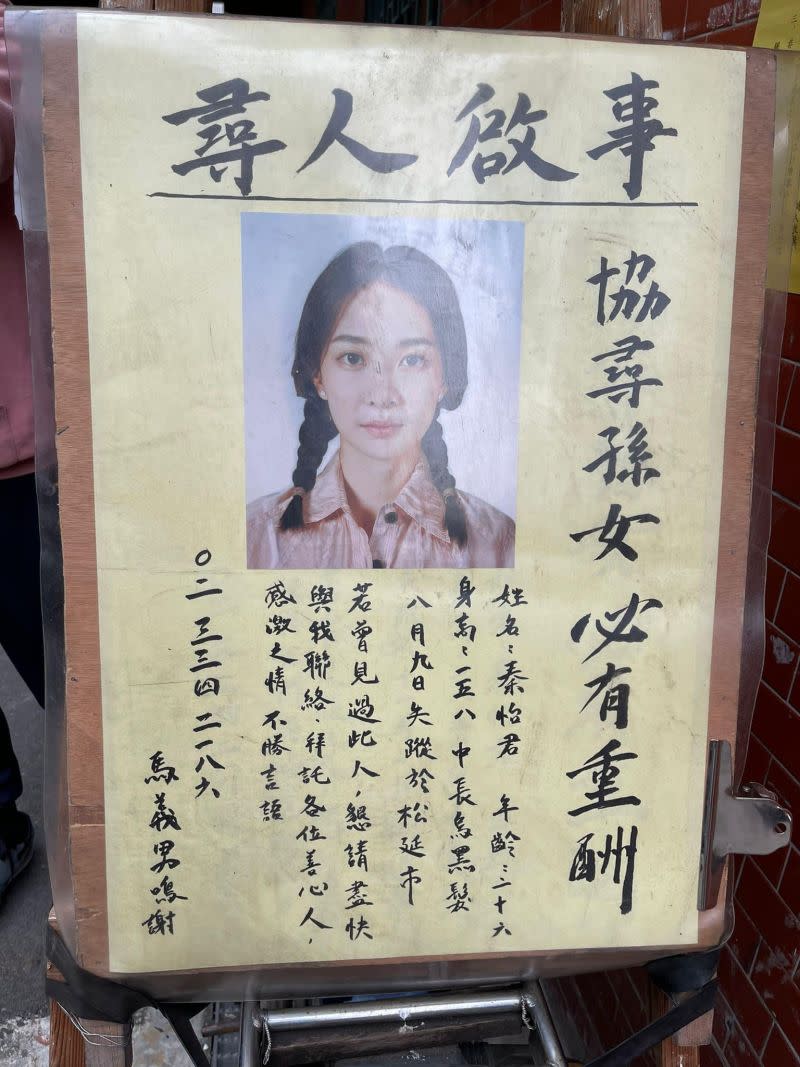 尋人啟事
協尋孫女必有重酬
姓名：秦怡君 年齡：二十六
身高：一五八 中長烏黑髮
八月九日失蹤於松延市
若曾見過此人，懇請盡快
與我聯絡、拜託各位善心人，
感激之情 不勝言語
〇二 三三四 二一八六
馬義男鳴謝